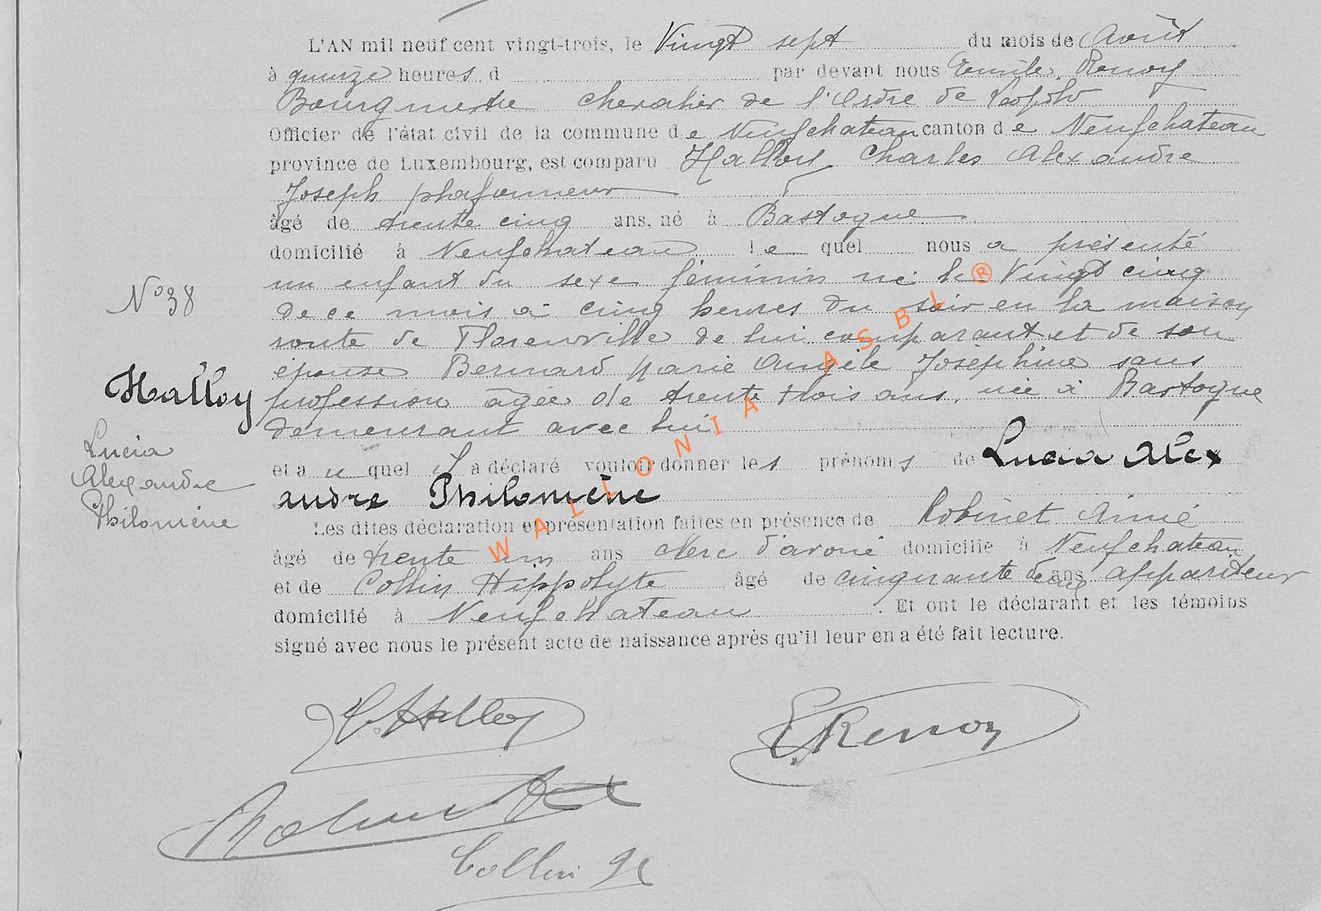 L'AN mil neuf cent vingt-trois, le Vingt sept du mois de Août
à quinze heures d par devant nous Emile Renoy
Bourgmestre chevalier de l'Ordre de Léopold
Officier de l'état civil de la commune de Neufchateau canton de Neufchateau
province de Luxembourg, est comparu Halloy Charles Alexandre
Joseph plafonneur
âgé de trente cinq ans, né à Bastogne
domicilié à Neufchateau le quel nous a présenté
un enfant du sexe féminin né le Vingt cinq
de ce mois à cinq heures du soir en la maison
route de Florenville de lui comparant et de son
épouse Bernard Marie Angèle Joséphine sans
profession âgée de trente trois ans, née à Bastogne
demeurant avec lui
et au quel il a déclaré vouloir donner les prénoms de Lucia Alex
andre Philomène
Les dites déclaration et présentation faites en présence de Robinet Aimé
âgé de trente un ans clerc d'avoué domicilié à Neufchateau
et de Collin Hippolyte âgé de cinquante deux ans appariteur
domicilié à Neufchateau. Et ont le déclarant et les témoins
signé avec nous le présent acte de naissance après qu'il leur en a été fait lecture.
N° 38
Halloy
Lucia
Alexandre
Philomène
C. Halloy
E Renoy
Robinet A
Collin H
WALLONIA ASBL ®